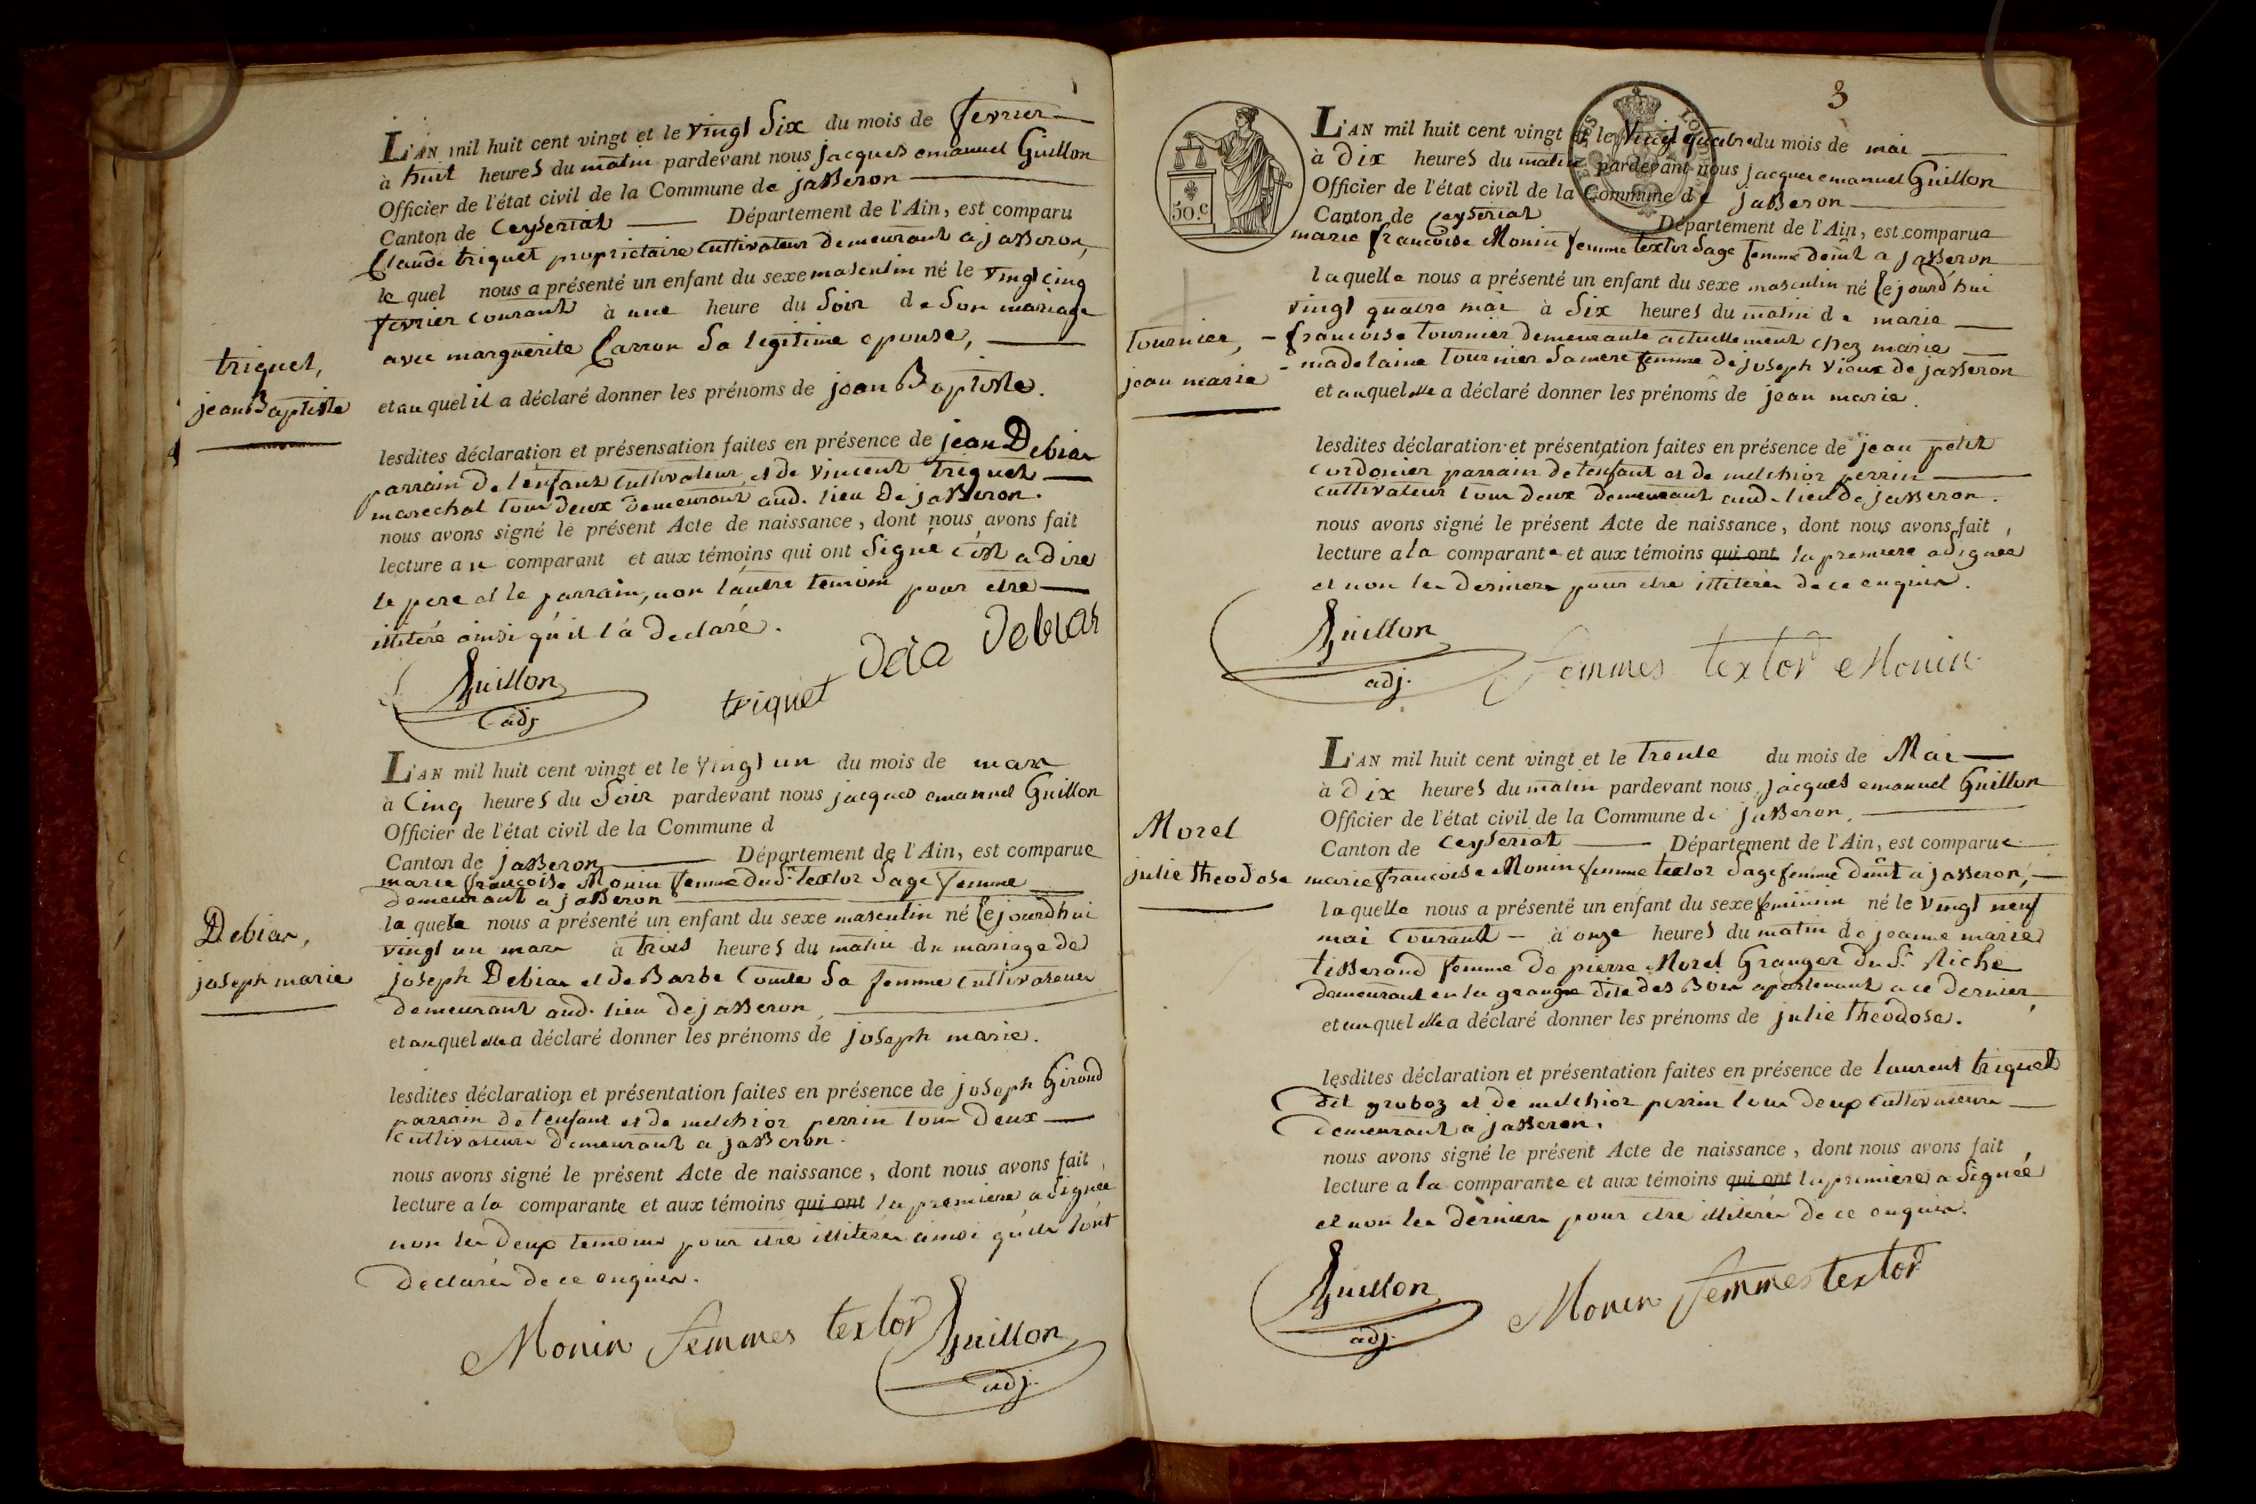 L'AN mil huit cent vingt et le vingt Six du mois de fevrier
à huit heures du matin pardevant nous jacques emanuel Guillon
Officier de l'état civil de la Commune de jasseron
Canton de Ceyseriat Département de l'Ain, est comparu
Claude triquet proprietaire Cultivateur demeurant a jasseron,
le quel nous a présenté un enfant du sexe masculin né le vingt cinq
fevrier courant à une heure du Soir de Son mariage
avec marguerite Carron Sa legitime epouse,
triquet,
jean Baptiste
et au quel il a déclaré donner les prénoms de jean Baptiste.
lesdites déclaration et présensation faites en présence de jean Debias
parrain de l'enfant cultivateur et de vincent triquet
marechal tous deux demeurant aud. lieu de jasseron.
nous avons signé le présent Acte de naissance, dont nous avons fait
lecture au comparant et aux témoins qui ont Signé c'est a dire
le pere et le parrain, non l'autre temoin pour etre
illiteré ainsi qu'il l'a declaré.
Guillon
adj
triquet
Debias
L'AN mil huit cent vingt et le vingt un du mois de mars
à Cinq heures du Soir pardevant nous jacques emanuel Guillon
Officier de l'état civil de la Commune d
Canton de jasseron Département de l'Ain, est comparue
marie françoise Monin femme du Sr. textor Sage femme
demeurant a jasseron
la quele nous a présenté un enfant du sexe masculin né cejourd'hui
vingt un mars à trois heures du matin du mariage de
Debias,
joseph marie
joseph Debias et de Barbe Comte Sa femme cultivateurs
demeurant aud. lieu de jasseron
et au quel elle a déclaré donner les prénoms de joseph marie.
lesdites déclaration et présentation faites en présence de joseph Giroud
parrain de l'enfant et de melchior perrin tous deux
Cultivateurs demeurant a jasseron.
nous avons signé le présent Acte de naissance, dont nous avons fait
lecture a la comparante et aux témoins qui ont la premiere a Signée
non les deux temoins pour etre illiterés ainsi qu'ils l'ont
declarés de ce enquis.
Monin femmes textor
Guillon
adj.
3
50.c
L'AN mil huit cent vingt et le vingt quatre du mois de mai
à Dix heures du matin pardevant nous jacques emanuel Guillon
Officier de l'état civil de la Commune de jasseron
Canton de Ceyseriat Département de l'Ain, est comparue
marie françoise Monin femme textor Sage femme demt a jasseron
laquelle nous a présenté un enfant du sexe masculin né cejourd'hui
vingt quatre mai à Six heures du matin de marie
tournier,
jean marie
françoise tournier demeurante actuellement chez marie
madelaine tournier Sa mere femme de joseph vieux de jasseron
et auquel elle a déclaré donner les prénoms de jean marie.
lesdites déclaration et présentation faites en présence de jean petit
cordonier parrain de l'enfant et de melchior perrin
cultivateur tous deux demeurant aud. lieu de jasseron.
nous avons signé le présent Acte de naissance, dont nous avons fait
lecture a la comparante et aux témoins qui ont la premiere a Signée
et non les derniers pour etre illiterés de ce enquis.
Guillon
adj.
femmes textor Monin
L'AN mil huit cent vingt et le trente du mois de Mai
à dix heures du matin pardevant nous jacques emanuel Guillon
Officier de l'état civil de la Commune de jasseron.
Canton de Ceyseriat Département de l'Ain, est comparue
Morel
julie theodose
marie françoise Monin femme textor Sage femme demt a jasseron,
laquelle nous a présenté un enfant du sexe feminin né le vingt neuf
mai Courant à onze heures du matin de jeanne marie
tisserand femme de pierre Morel Granger du Sr. Riche
demeurant en la grange dite des Bois apartenant a ce dernier
et au quel elle a déclaré donner les prénoms de julie theodose.
lesdites déclaration et présentation faites en présence de laurent triquet
dit groboz et de melchior perrin tous deux cultivateurs
demeurant a jasseron.
nous avons signé le présent Acte de naissance, dont nous avons fait
lecture a la comparante et aux témoins qui ont la premiere a Signée
et non les derniers pour etre illiterés de ce enquis.
Guillon
adj.
Monin femmes textor